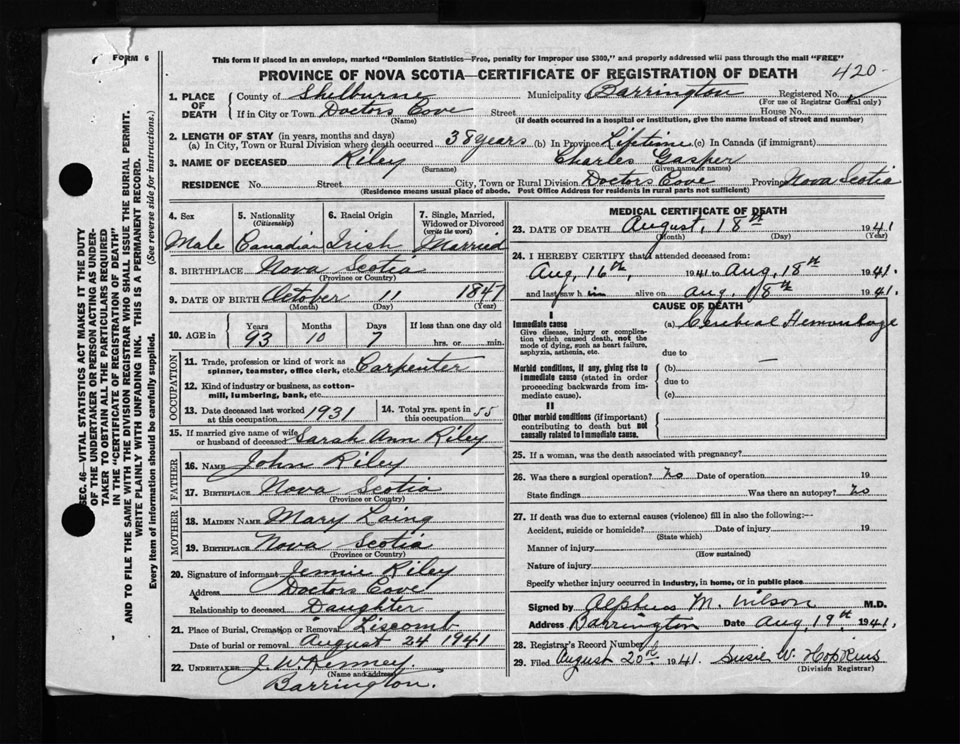 FORM 6
This form if placed in an envelope, marked "Dominion Statistics—Free, penalty for improper use $300," and properly addressed will pass through the mail "FREE"
PROVINCE OF NOVA SCOTIA—CERTIFICATE OF REGISTRATION OF DEATH
420
1. PLACE OF DEATH
County of Shelburne Municipality of Barrington Registered No.
(For use of Registrar General only)
If in City or Town Doctors Cove Street House No.
(Name) (If death occurred in a hospital or institution, give the name instead of street and number)
2. LENGTH OF STAY (in years, months and days)
(a) In City, Town or Rural Division where death occurred 38 years (b) In Province Liftime (c) In Canada (if immigrant)
3. NAME OF DECEASED Riley Charles Gasper
(Surname) (Given name or names)
RESIDENCE No. Street City, Town or Rural Division Doctors Cove Province Nova Scotia
(Residence means usual place of abode. Post Office Address for residents in rural parts not sufficient)
4. Sex
Male
5. Nationality
(Citizenship)
Canadian
6. Racial Origin
Irish
7. Single, Married, Widowed or Divorced
(write the word)
Married
8. BIRTHPLACE Nova Scotia
(Province or Country)
9. DATE OF BIRTH October 11 1847
(Month) (Day) (Year)
10. AGE in
Years Months Days If less than one day old
93 10 7 hrs. or min.
OCCUPATION
11. Trade, profession or kind of work as
spinner, teamster, office clerk, etc. Carpenter
12. Kind of industry or business, as cotton-
mill, lumbering, bank, etc.
13. Date deceased last worked
at this occupation 1931
14. Total yrs. spent in
this occupation 55
15. If married give name of wife
or husband of deceased Sarah Ann Riley
FATHER
16. NAME John Riley
17. BIRTHPLACE Nova Scotia
(Province or Country)
MOTHER
18. MAIDEN NAME Mary Laing
19. BIRTHPLACE Nova Scotia
(Province or Country)
20. Signature of informant Jennie Riley
Address Doctors Cove
Relationship to deceased Daughter
21. Place of Burial, Cremation or Removal Liscomb
Date of burial or removal August 24 1941
22. UNDERTAKER J. W. Kenney.
(Name and address)
Barrington.
MEDICAL CERTIFICATE OF DEATH
23. DATE OF DEATH August, 18th 1941
(Month) (Day) (Year)
24. I HEREBY CERTIFY that I attended deceased from
Aug, 16th, 1941 to Aug, 18th 1941.
and last saw him alive on Aug, 18th 1941.
CAUSE OF DEATH
I
Immediate cause (a) Cerebral Hemorrhage
Give disease, injury or complica-
tion which caused death, not the
mode of dying, such as heart failure,
asphyxia, asthenia, etc.
due to
Morbid conditions, if any, giving rise to
immediate cause (stated in order
proceeding backwards from im-
mediate cause).
(b) —
due to
(c)
II
Other morbid conditions (if important)
contributing to death but not
causally related to immediate cause.
25. If a woman, was the death associated with pregnancy?
26. Was there a surgical operation? No Date of operation 19
State findings Was there an autopsy? No
27. If death was due to external causes (violence) fill in also the following:—
Accident, suicide or homicide? Date of injury 19
(State which)
Manner of injury
(How sustained)
Nature of injury
Specify whether injury occurred in industry, in home, or in public place
Signed by Alpheus M. Wilson M.D.
Address Barrington Date Aug, 19th 1941.
28. Registrar's Record Number
29. Filed August 20th 1941. Susie W. Hopkins
(Division Registrar)
SEC. 46—VITAL STATISTICS ACT MAKES IT THE DUTY
OF THE UNDERTAKER OR PERSON ACTING AS UNDER-
TAKER TO OBTAIN ALL THE PARTICULARS REQUIRED
IN THE "CERTIFICATE OF REGISTRATION OF DEATH"
AND TO FILE THE SAME WITH THE DIVISION REGISTRAR WHO SHALL ISSUE THE BURIAL PERMIT.
WRITE PLAINLY WITH UNFADING INK. THIS IS A PERMANENT RECORD.
Every item of information should be carefully supplied. (See reverse side for instructions.)